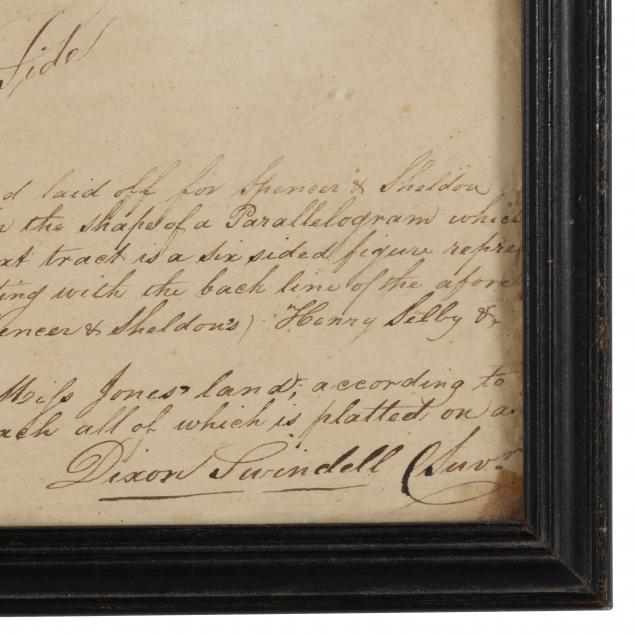 Side
d laid off for Spencer & Sheldon
n the shape of a Parallelogram which
xt tract is a six sided figure repre
ting with the back line of the afore
pencer & Sheldon's) Henry Selby &
Miss Jones' land; according to
ach all of which is platted on a
Dixon Swindell (Suvr